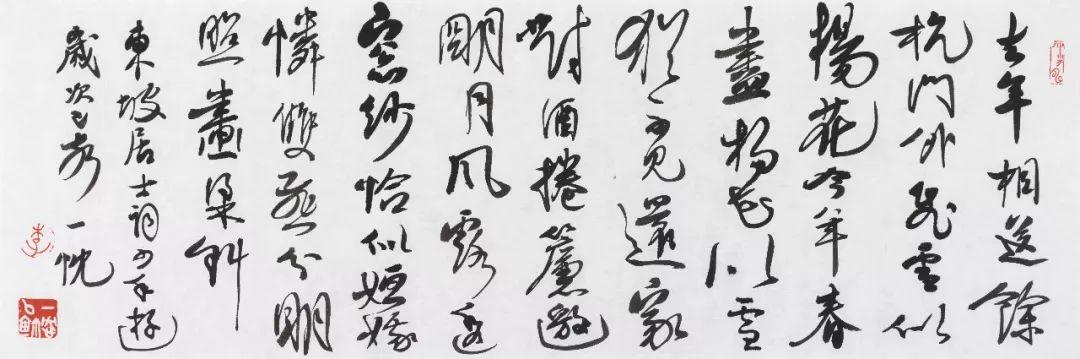 去年相送餘
杭門外飛雪似
楊花今年春
盡楊花似雪
猶不見還家
對酒捲簾邀
明月風露透
窓紗恰似姮娥
憐雙燕分明
照畫梁斜
東坡居士詞少年游
歲次己亥 一忱
李